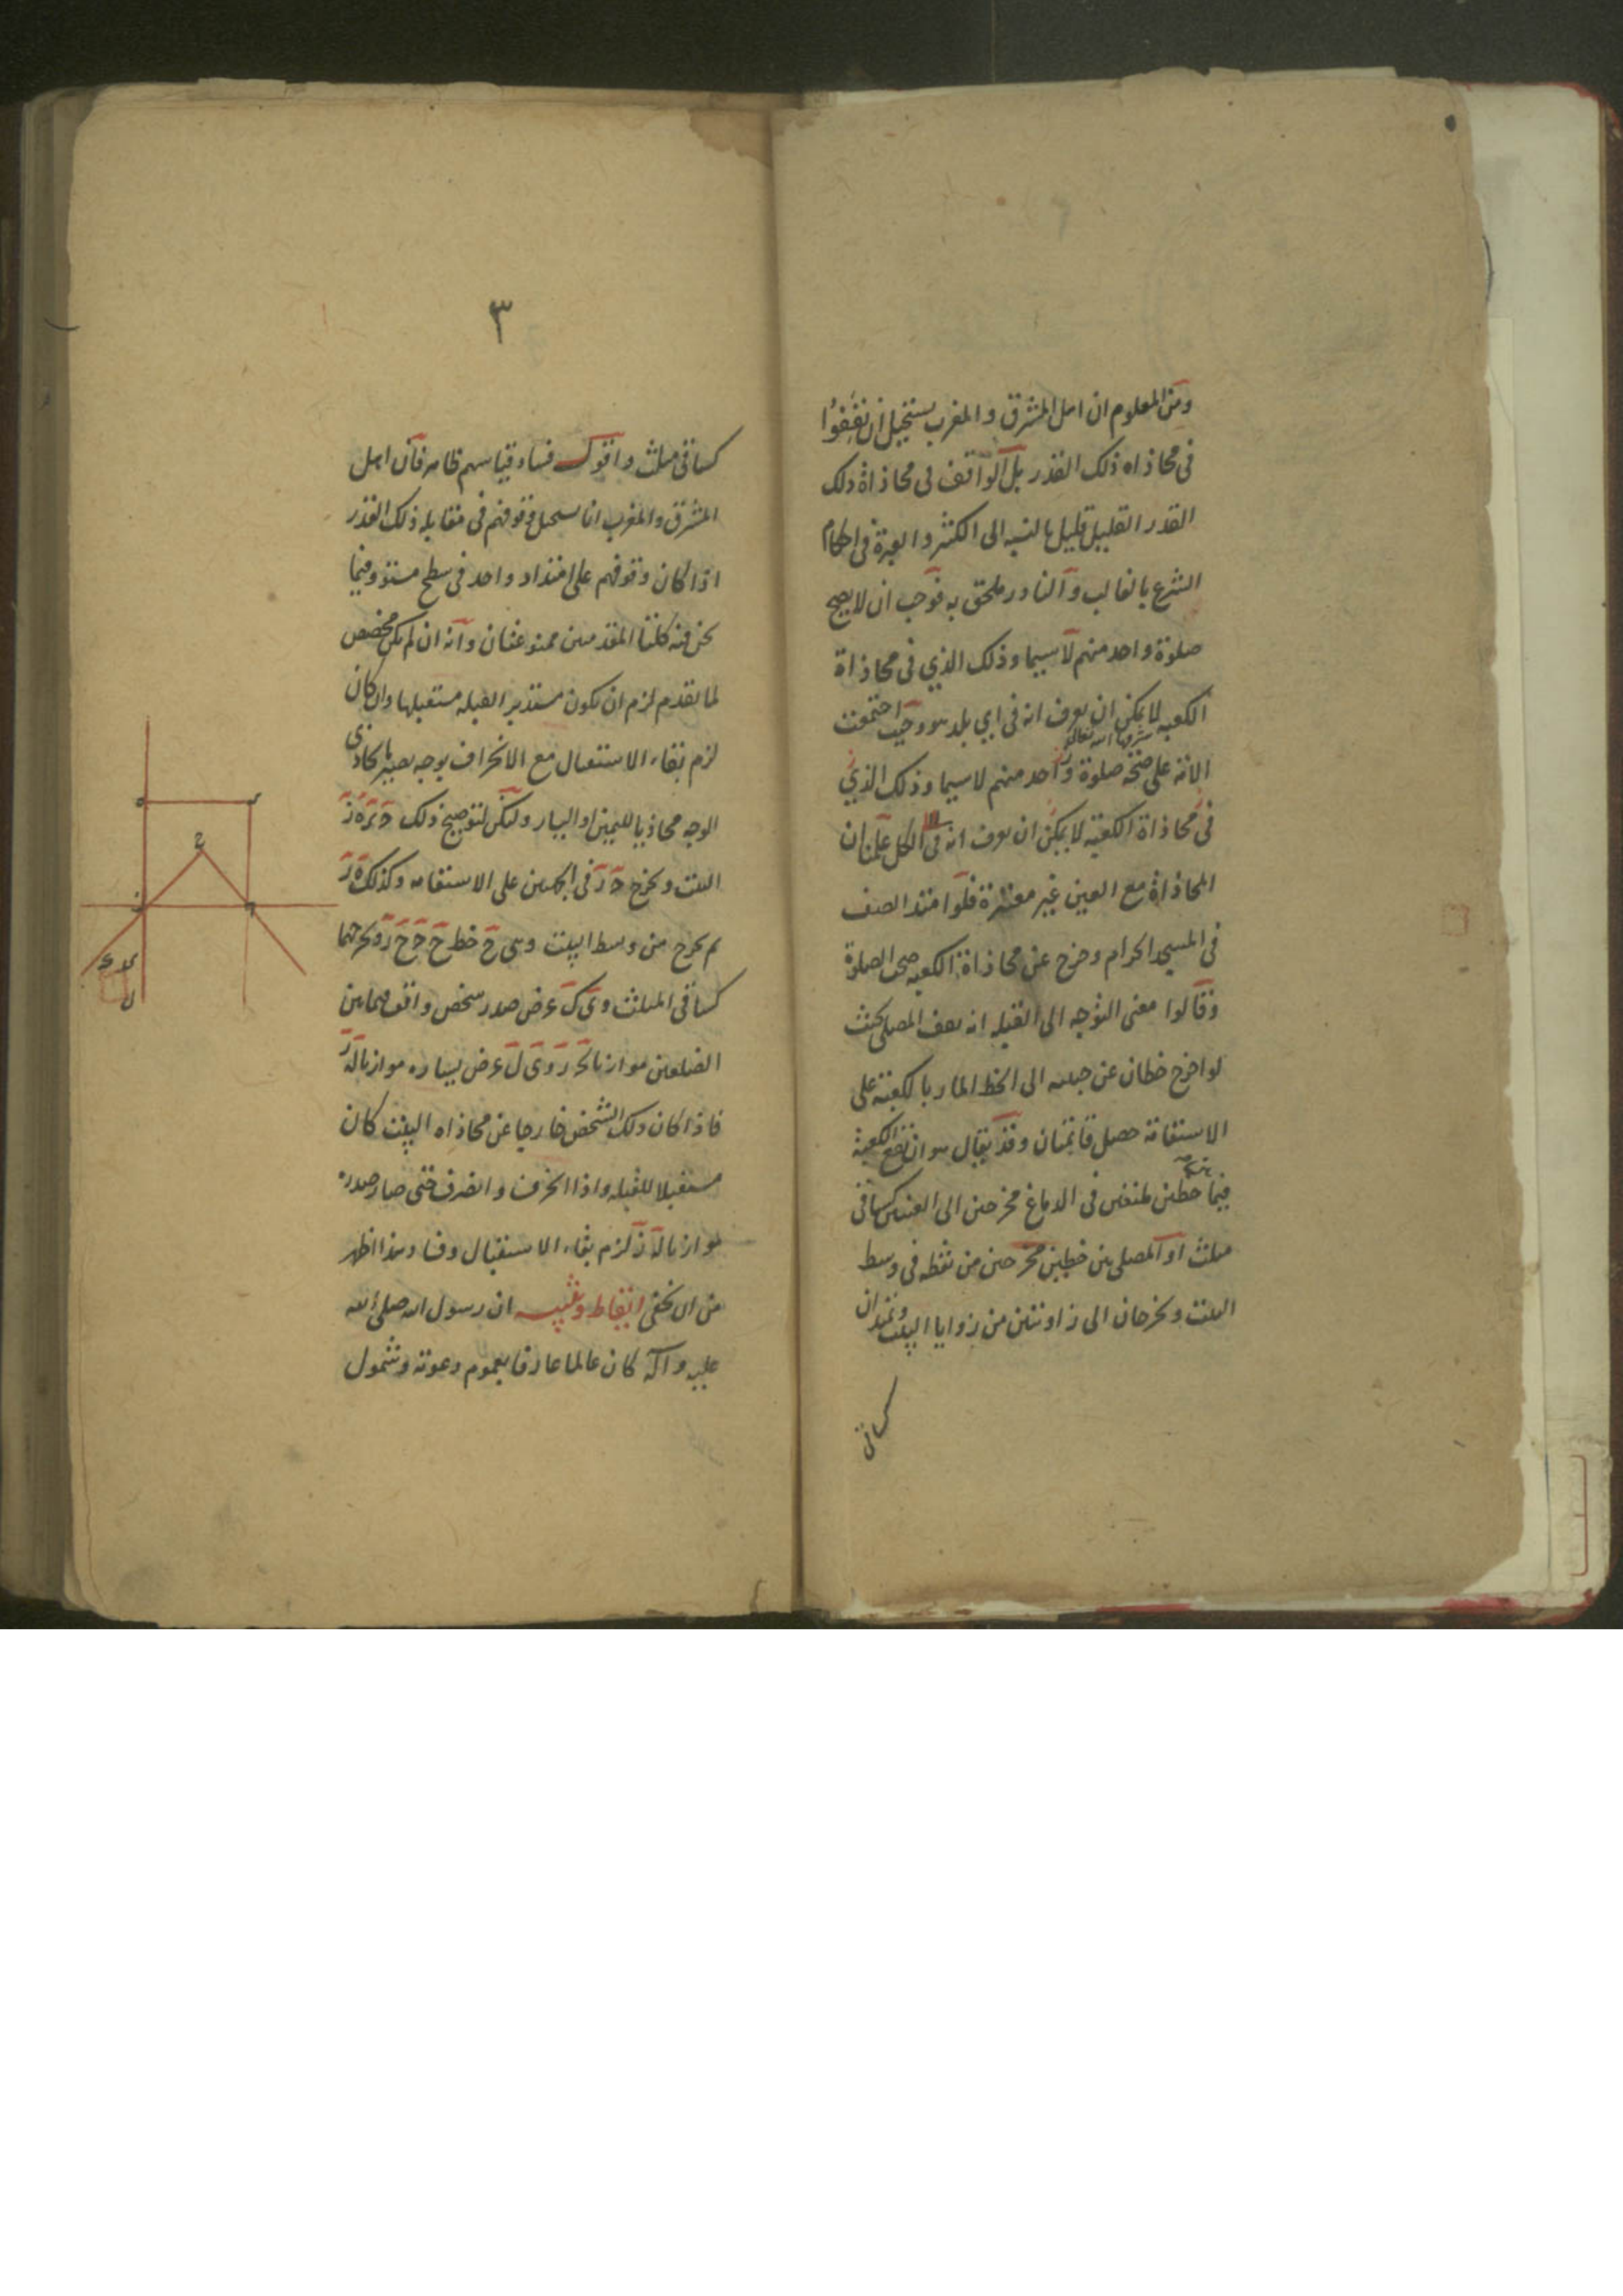 ومن المعلوم ان اهل المشرق والمغرب يستحيل ان يقفوا
في محاذاه ذلك القدر بل الواقف في محاذاة ذلك
القدر القليل قليل بالنسبه الى الكثير والعبرة في احكام
الشرع بالغالب والنادر ملحق به فوجب ان لا يصح
صلوة واحد منهم لا سيما وذلك الذي في محاذاة
الكعبه لا يمكن ان يعرف انه في اي بلد هو وحيث اجتمعت
شرفها الله تعالى
الامه على صحة صلوة واحد منهم لا سيما وذلك الذي
في محاذاة الكعبة لا يمكن ان يعرف انه في الكل علمنا ان
المحاذاة مع العين غير معتبرة فلو امتد الصف
في المسجد الحرام وخرج عن محاذاة الكعبه صحت الصلوة
وقالوا معنى التوجه الى القبله انه يقف المصلي بحيث
لو اخرج خطان عن جبينه الى الخط المار بالكعبة على
الاستقامة حصل قائمتان وقد يقال هو ان تقع الكعبة
فيما بين خطين يلتقيان في الدماغ مخرجين الى العينين كساقي
مثلث او المصلي بين خطين مخرجين من نقطه في وسط
البيت ويخرجان الى زاويتين من زوايا البيت ويمتدان
كساقي
٣
كساقي مثلث واقول فساد قياسهم ظاهر فان اهل
المشرق والمغرب انما يستحيل وقوفهم في مقابله ذلك القدر
اذا كان وقوفهم على امتداد واحد في سطح مستو وفيما
نحن فيه كلتا المقدمتين ممنوعتان وانه ان لم يكن مخصص
لما تقدم لزم ان يكون مستدبر القبله مستقبلها وان كان
لزم بقاء الاستقبال مع الانحراف بوجه يصير ما يحاذي
الوجه محاذيا لليمين او اليسار وليكن لتوضيح ذلك
البيت ويخرج في الجهتين على الاستقامه وكذلك
ثم يخرج من وسط البيت وهي ح خط ويخرجهما
كساقي المثلث وي ك عرض صدر شخص واقف فيما بين
الضلعين موازيا وي ل عرض يساره موازيا
فاذا كان ذلك الشخص خارجا عن محاذاه البيت كان
مستقبلا للقبله واذا انحرف وانصرف حتى صار صدره
موازيا لزم بقاء الاستقبال وفساد هذا اظهر
من ان يخفى ايقاظ وتنبيه ان رسول الله صلى الله
عليه وآله كان عالما عارفا بعموم دعوته وشمول
ح
ل